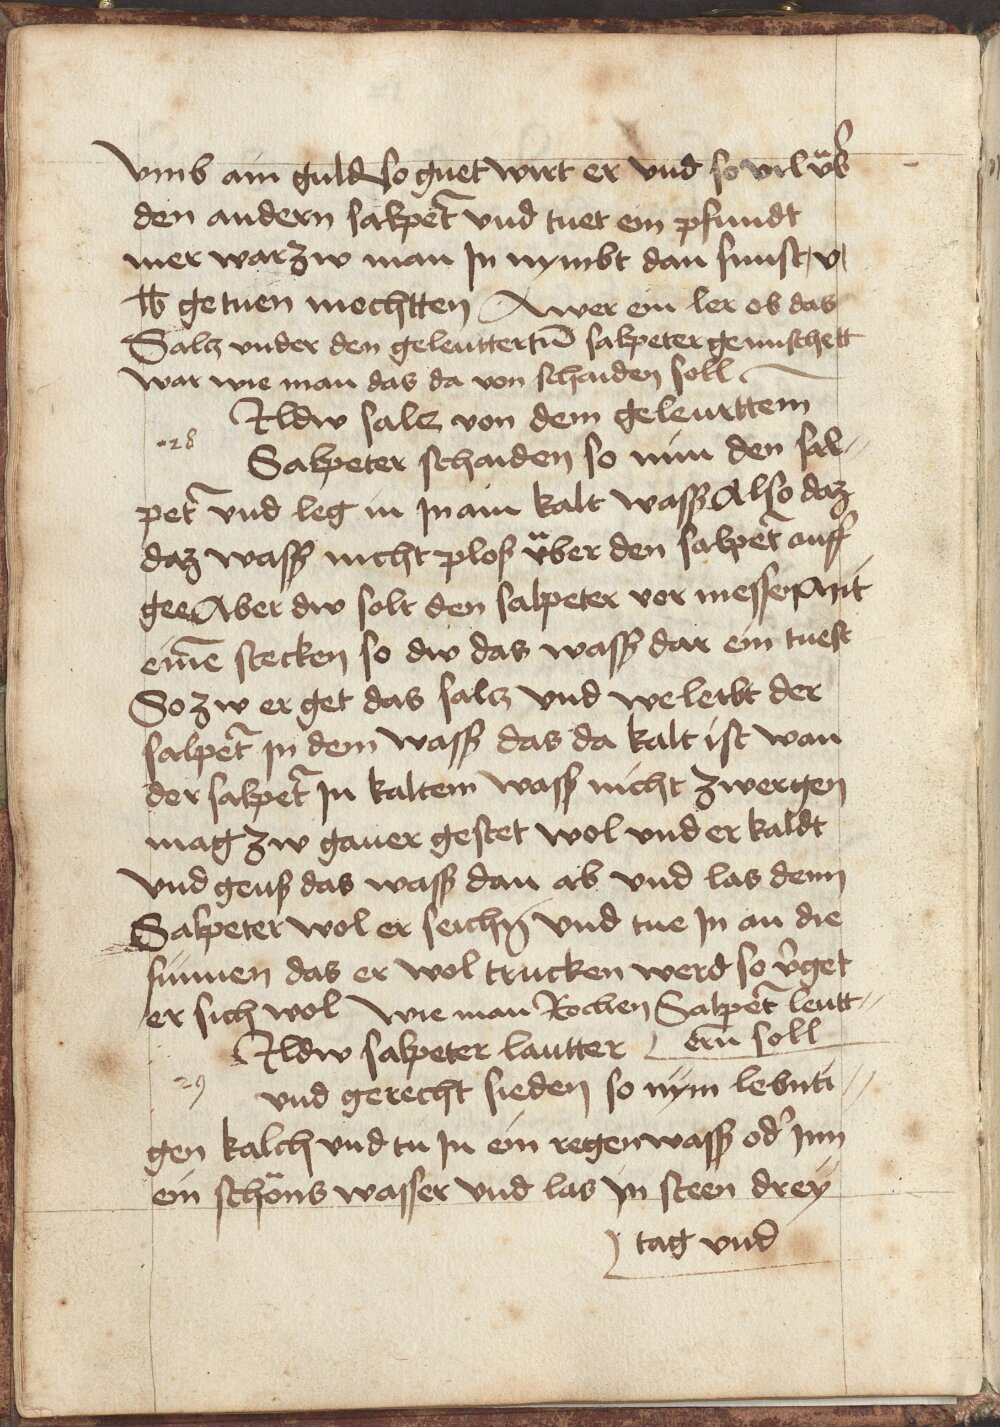 vmb ain guld so guet wirt er vnd so vil üb
den andern salpet vnd tuet ein pfundt
mer warzw man In nymbt dan sunst v
lb getuen mochtten Awer ein ler ob das
Salcz vnder den geleutterten salpeter gemischett
war wie man das da von schaiden soll
Wildw salcz von dem geleurttem
28
Salpeter schaiden so nim den sal-
pet vnd leg in In ain kalt wasser Also daz
daz wasser nicht plos über den salpet auff
gee Aber dw solt den salpeter vor messen Mit
eine stecken so dw das wasser dar ein tuest
So zw er get das salcz vnd weleibt der
salpet In dem wasser das da kalt ist wan
der salpet In kaltem wasser nicht zwergen
mag zw gauer gestet wol vnd er kaldt
vnd geus das wasser dan ab vnd las denn
Salpeter wol er seichn vnd tue In an die
sunnen das er wol trucken werd so vget
er sich wol wie man Rochen Salpet leutt-
ern soll
Wildw salpeter lautter
29
vnd gerecht sieden so nym lebnti
gen kalch vnd tu In ein regenwasser od Inn
ein schöns wasser vnd las In steen drey
tag vnd